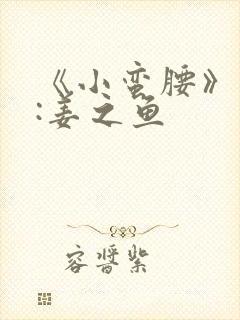 《小蛮腰》
:姜之鱼
容晋紫